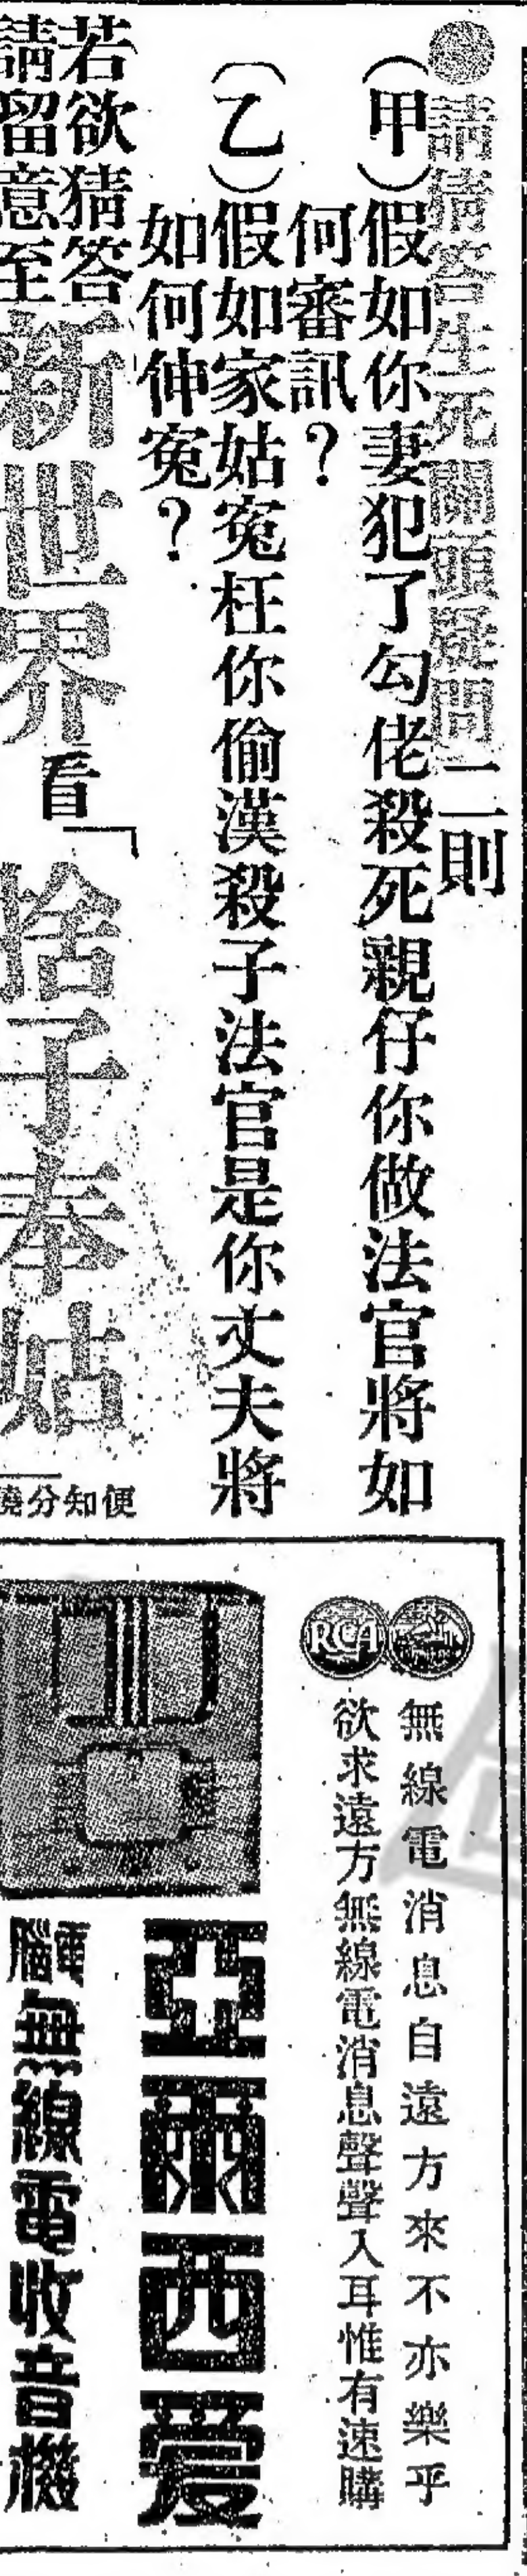 ●請猜答生死關頭疑問二則
(甲)假如你妻犯了勾佬殺死親仔你做法官將如
何審訊？
(乙)假如家姑寃枉你偷漢殺子法官是你丈夫將
如何伸寃？
若欲猜答
請留意至
新世界
看
「捨子奉姑」
便知分曉
RCA
無線電消息自遠方來不亦樂乎
欲求遠方無線電消息聲聲入耳惟有速購
亞爾西愛
電腦無線電收音機